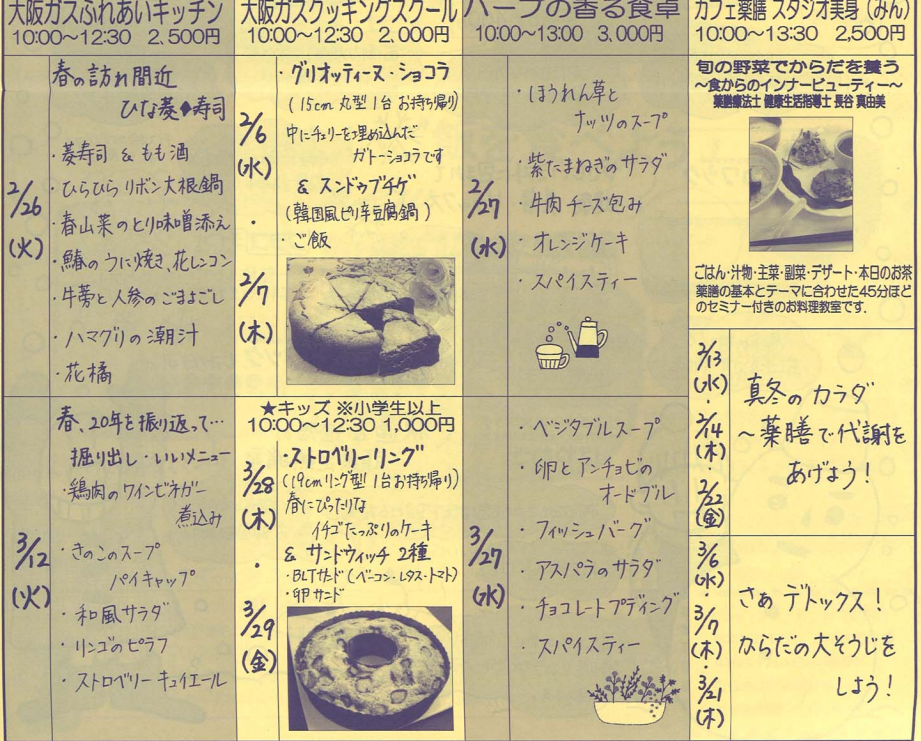 大阪ガスふれあいキッチン
10:00～12:30　2,500円
2/26
(火)
春の訪れ間近
ひな菱◆寿司
・菱寿司 & もも酒
・ひらひら リボン大根鍋
・春山菜のとり味噌添え
・鰆のうに焼き、花レンコン
・牛蒡と人参のごまよごし
・ハマグリの潮汁
・花橘
3/12
(火)
春、20年を振り返って…
掘り出し・いいメニュー
・鶏肉のワインビネガー
煮込み
・きのこのスープ
パイキャップ
・和風サラダ
・リンゴのピラフ
・ストロベリーキュイエール
大阪ガスクッキングスクール
10:00～12:30　2,000円
2/6
(水)
・
2/7
(木)
・グリオッティーヌ・ショコラ
(15cm 丸型1台 お持ち帰り)
中にチェリーを埋め込んだ
ガトーショコラです
& スンドゥブチゲ
(韓国風ピリ辛豆腐鍋)
・ご飯
★キッズ ※小学生以上
10:00～12:30 1,000円
3/28
(木)
・
3/29
(金)
・ストロベリーリング
(19cmリング型 1台お持ち帰り)
春にぴったりな
イチゴたっぷりのケーキ
& サンドウィッチ 2種
・BLTサンド(ベーコン・レタス・トマト)
・卵サンド
ハーブの香る食卓
10:00～13:00　3,000円
2/27
(水)
・ほうれん草と
ナッツのスープ
・紫たまねぎのサラダ
・牛肉チーズ包み
・オレンジケーキ
・スパイスティー
3/27
(水)
・ベジタブルスープ
・卵とアンチョビの
オードブル
・フィッシュバーグ
・アスパラのサラダ
・チョコレートプディング
・スパイスティー
カフェ薬膳 スタジオ美身(みん)
10:00～13:30　2,500円
旬の野菜でからだを養う
～食からのインナービューティー～
薬膳療法士 健康生活指導士 長谷 真由美
ごはん・汁物・主菜・副菜・デザート・本日のお茶
薬膳の基本とテーマに合わせた45分ほど
のセミナー付きのお料理教室です.
2/13
(水)
・
2/14
(木)
・
2/22
(金)
真冬のカラダ
～薬膳で代謝を
あげよう！
3/6
(水)
・
3/7
(木)
・
3/21
(木)
さぁ デトックス！
からだの大そうじを
しよう！